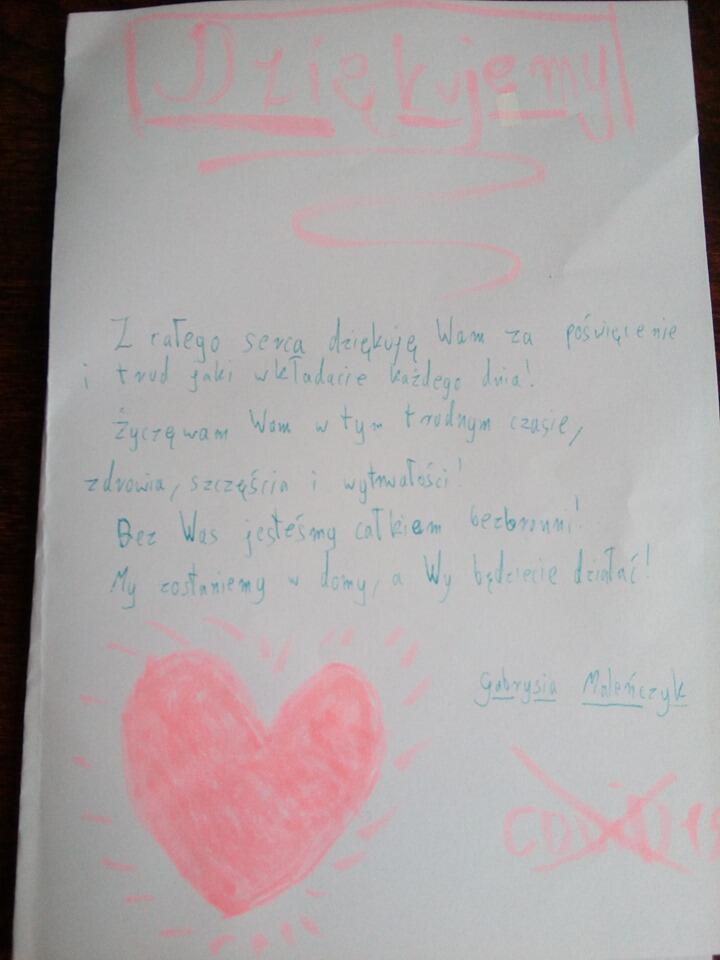 Dziękujemy
Z całego serca dziękuję Wam za poświęcenie
i trud jaki wkładacie każdego dnia!
Życzęwam Wam w tym trudnym czasie,
zdrowia, szczęścia i wytrwałości!
Bez Was jesteśmy całkiem bezbronni!
My zostaniemy w domy, a Wy będziecie działać!
Gabrysia Maleńczyk
COVID 19